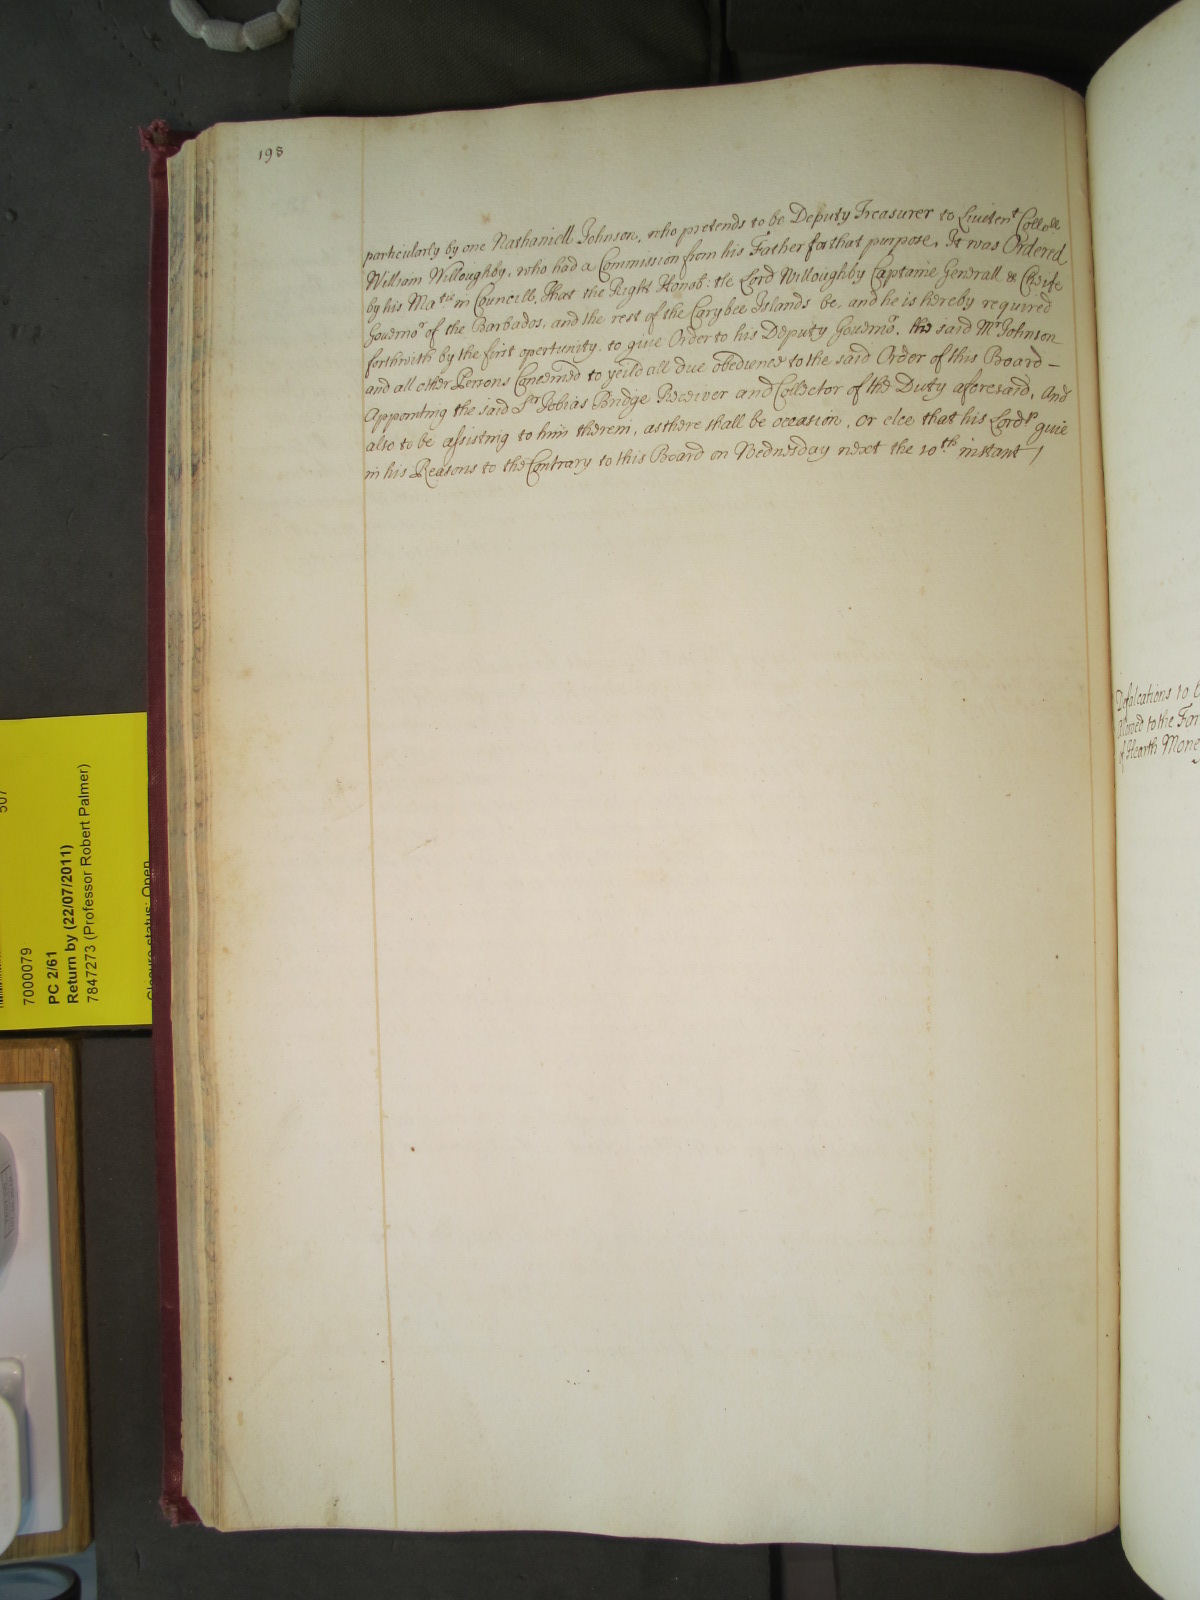 198
particularly by one Nathaniell Johnson, who pretends to be Deputy Treasurer to Liueten^t Coll^oll
William Willoughby, who had a Commission from his Father for that purpose, It was Ordered
by his Ma^tie in Councill, That the Right Honob: the Lord Willoughby Captaine Generall & Cheife
Gouerno^r of the Barbados, and the rest of the Carybee Islands be, and he is hereby required
forthwith by the first opertunity, to giue Order to his Deputy Gouerno^r, the said M^r Johnson
and all other Persons Concerned to yeild all due obedience to the said Order of this Board –
Appointing the said S^r Tobias Bridge Receiver and Collector of the Duty aforesaid, And
also to be assisting to him therein, as there shall be occasion, or else that his Lord^p giue
in his Reasons to the Contrary to this Board on Wednesday next the 10^th instant /
Defalcations to
allowed to the Far
of Hearth Money
507
7000079
PC 2/61
Return by (22/07/2011)
7847273 (Professor Robert Palmer)
Closure status: Open